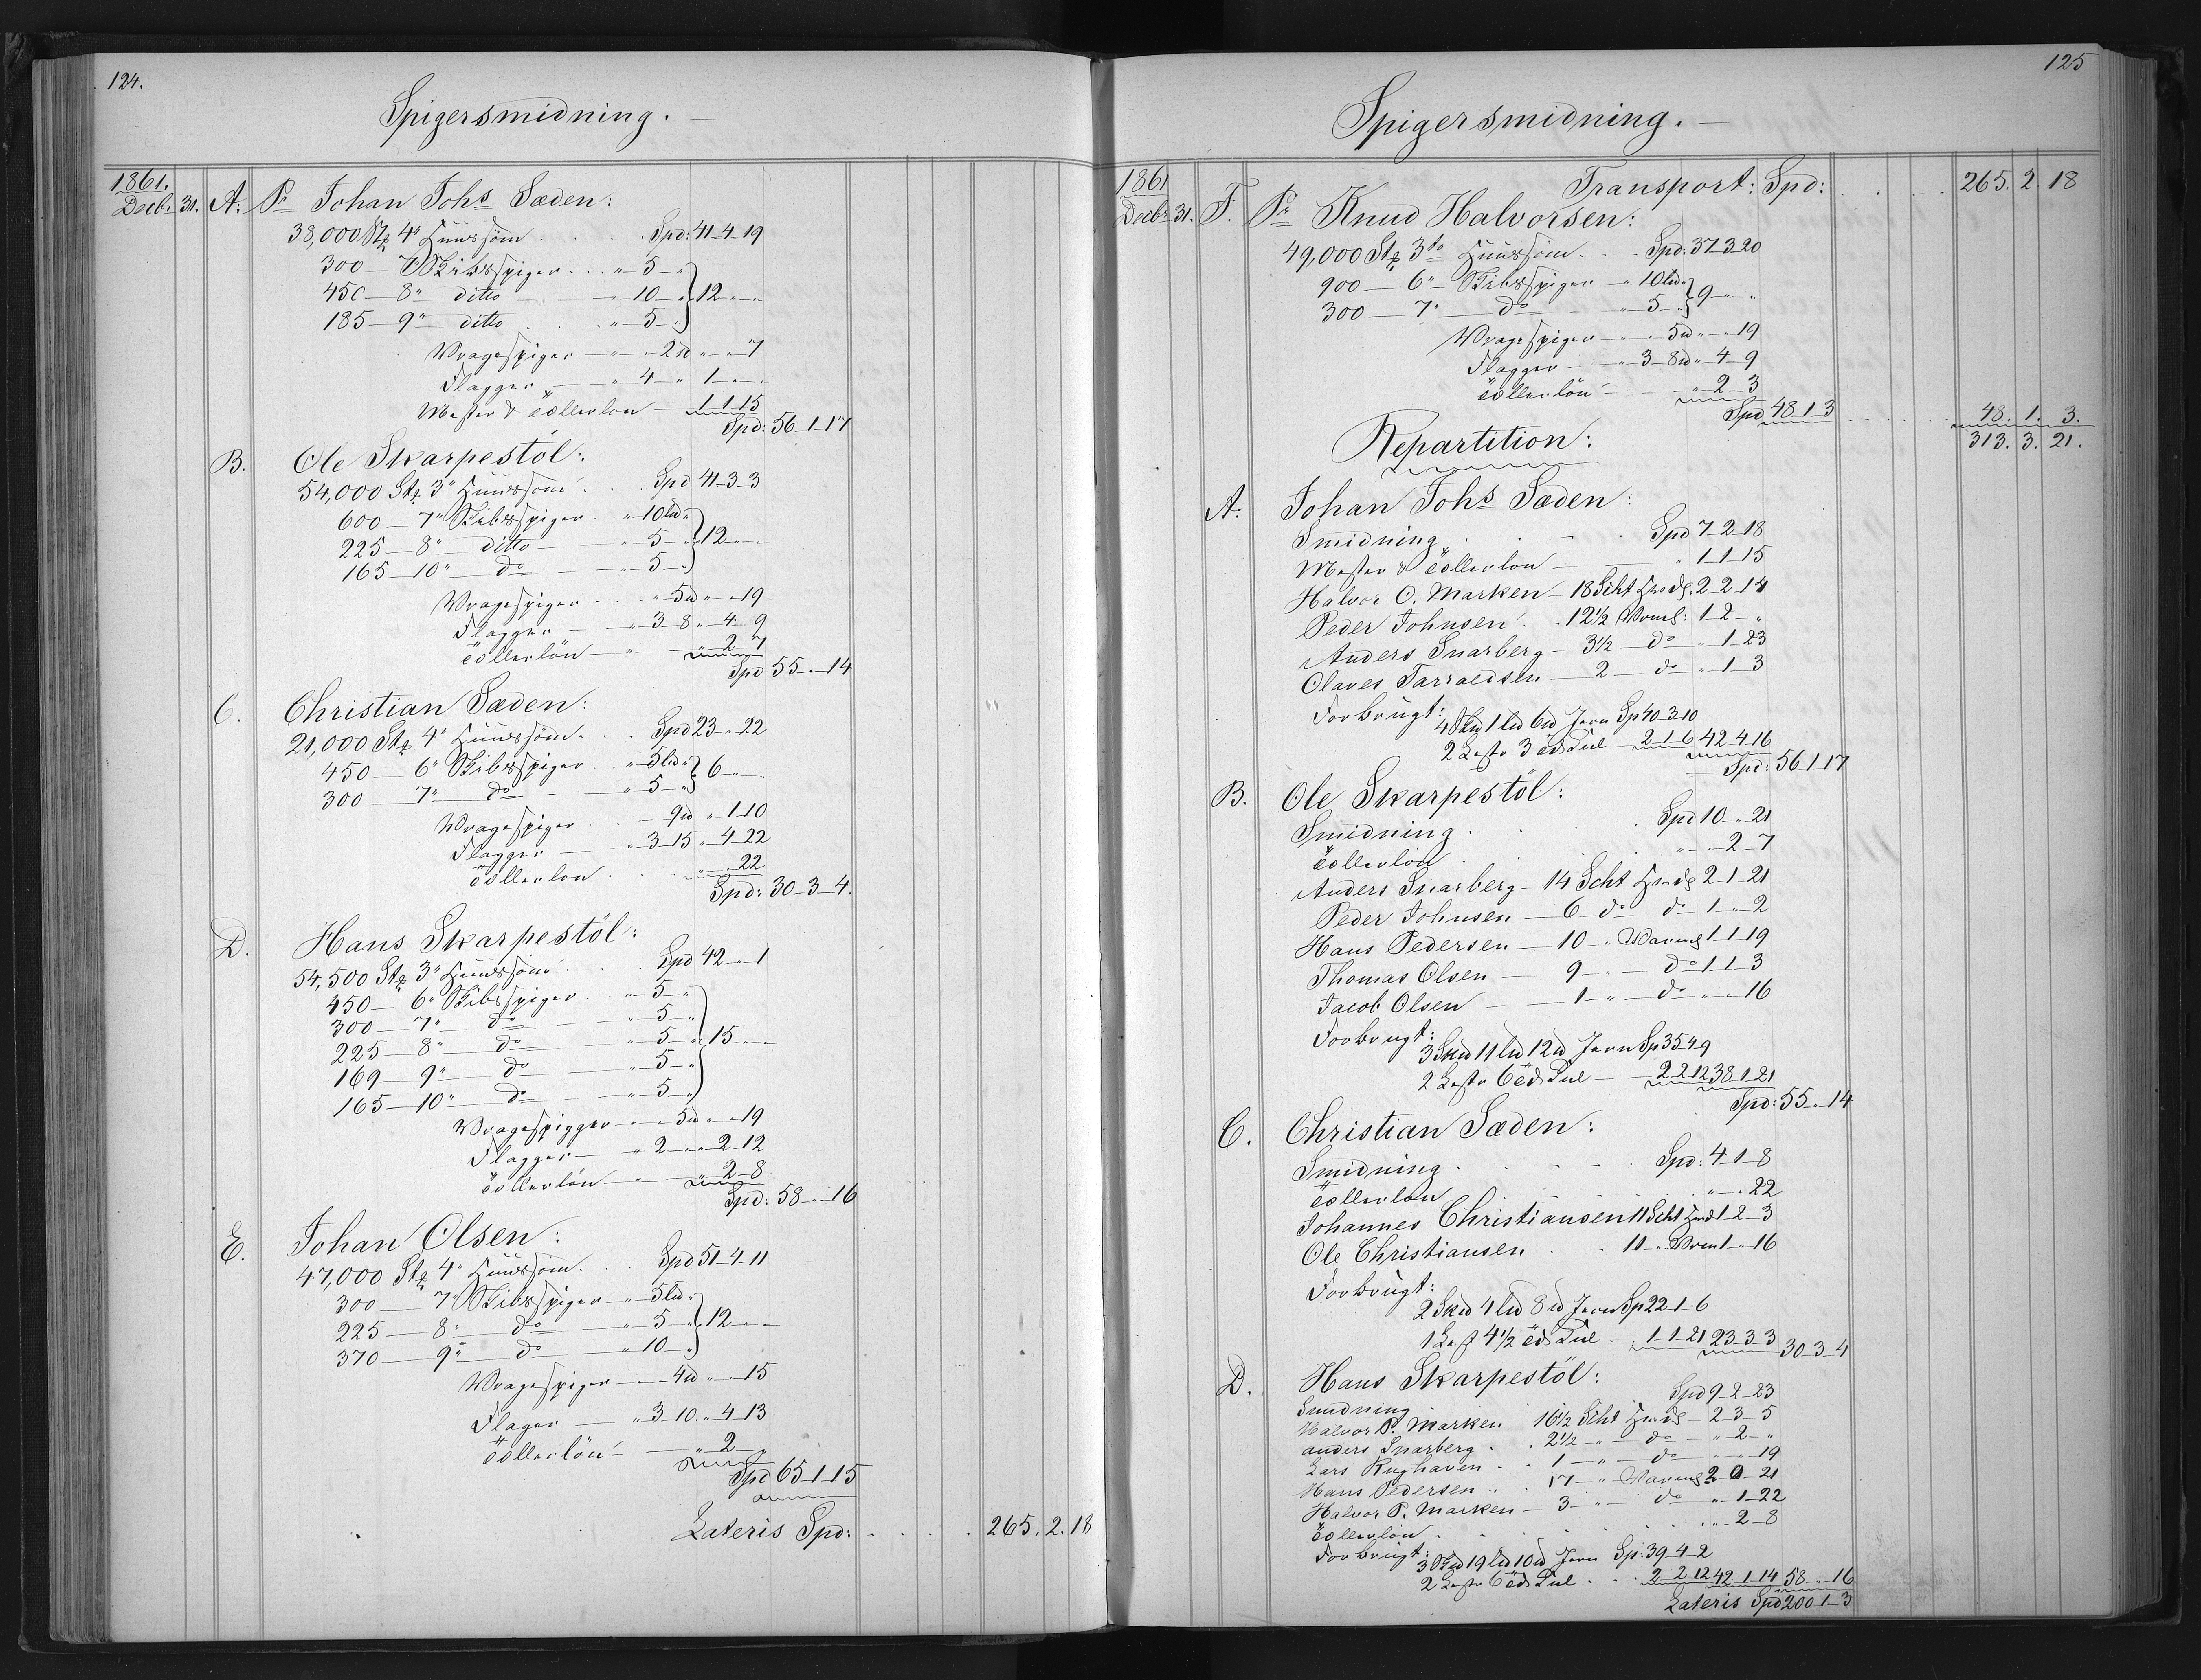 124.
Spigersmidning.
1861.
Decbr. 31. A. Pr Johan Johs Sæden:
38,000 Stk 4" Huussöm . . Spd: 41-4-19
300 - 7" Skibsspiger . . " 5 - "
450 - 8" ditto - " 10 - " } 12 " - "
185 - 9" ditto . " 5 - "
Vragespiger - " - 2 ℔ " - " 7
Flagger - " 4 - " 1 " - "
Mester & Cöllerlön - 1-1-15
Spd: 56-1-17
B. Ole Skarpestöl:
54,000 Stk 3" Huussöm . . Spd 41-3-3
600 - 7" Skibsspiger . " 10 L℔ "
225 - 8" ditto - " 5 - " } 12 " - "
165 - 10" do - " 5 - "
Vragespiger . . " 5℔ " - " 19
Flagger - " 3-8 " 4-9
Cöllerlön - " - " 2-7
Spd 55 - " - 14
C. Christian Sæden:
21,000 Stk 4" Huussöm . . Spd 23 - " 22
450 - 6" Skibsspiger . . " 5 L℔ "
300 - 7" do - " 5 - " } 6 " - "
Vragespiger . - 9℔ " 1-10
Flagger - " 3-15 " 4-22
Cöllerlön . . " - " 22
Spd: 30-3-4.
D. Hans Skarpestöl:
54,500 Stk 3" Huussöm . . Spd 42 - " 1
450 - 6" Skibsspiger . . " 5 - "
300 - 7" do - " 5 - "
225 - 8" do - " 5 - " } 15 " - "
169 - 9" do - " 5 - "
165 - 10" do - " 5 - "
Vragespigger - " 5℔ " - " 19
Flagger - " 2 - " " 2-12
Cöllerlön - " - " 2-8
Spd: 58 - " - 16
E. Johan Olsen:
47,000 Stk 4" Huussöm . . Spd 51-4-11
300 - 7" Skibsspiger - " 5 L℔ "
225 - 8" do - " 5 - " } 12 " - "
370 - 9" do - " 10 - "
Vragespiger - " - 4℔ " - " 15
Flager - " 3-10 " 4-13
Cöllerlön - " 2 - "
Spd 65-1-15
Lateris Spd: . . . . 265. 2. 18
125
Spigersmidning.
Transport: Spd: . . . 265. 2. 18
1861
Decbr 31. F. Pr Knud Halvorsen:
49,000 Stk 3" Huussöm . . Spd: 37-3-20
900 - 6" Skibsspiger - " 10 L℔ "
300 - 7" do - " 5 - " } 9 " - "
Vragespiger - " - 5℔ " - " 19
Flagger - " 3-8℔ " 4-9
Cöllerlön - - " 2-3
Spd 48-1-3 . . . . 48. 1. 3.
313. 3. 21.
Repartition:
A: Johan Johs Sæden:
Smidning . . . Spd 7-2-18
Mester & Cöllerlön - " 1-1-15
Halvor O. Marken - 18 Scht Hunds. 2-2-14
Peder Johnsen . . 12½ Varml: 1-2- "
Anders Snarberg - 3½ - do " 1-23
Olaves Tarraldsen - 2 - do " 1-3
Forbrugt:
4 Sk℔ 1 L℔ 6℔ Jern Sp 40-3-10
2 Lester 3 Tds Kul - 2-1-6 42-4-16
Spd: 56-1-17
B. Ole Skarpestöl:
Smidning . . . Spd 10 - " 21
Cöllerlön . . . " - 2-7
Anders Snarberg - 14 Scht Hunds 2-1-21
Peder Johnsen - 6 do do 1 - " 2
Hans Pedersen - 10 - " Varml 1-1-19
Thomas Olsen - 9 - " - do 1-1-3
Jacob Olsen - 1 - " - do " - " 16
Forbrugt:
3 Sk℔ 11 L℔ 12℔ Jern Sp 35-4-9
2 Lester 6 Tds Kul - 2-2-12 38-1-21
Spd: 55 - " - 14
C. Christian Sæden:
Smidning . . . Spd: 4-1-8
Cöllerlön . . . " - " 22
Johannes Christiansen 11 Scht Hunds 1-2-3
Ole Christiansen . . 11 - " Varm 1 - " 16
Forbrugt:
2 Sk℔ 4 L℔ 8℔ Jern Sp 22-1-6
1 Lest 4½ Tds Kul . 1-1-21 23-3-3 30-3-4
D. Hans Skarpestöl:
Smidning . . . Spd 9-2-23
Halvor P. Marken 16½ Scht Hunds - 2-3-5
Anders Snarberg . . 2½ - " - do - " 2 - "
Lars Rughaven - . 1 - " do " - " 19
Hans Pedersen . . 17 - " Varml 2-0-21
Halvor P. Marken - 3 - " - do " 1-22
Cöllerlön . . . . . " 2-8
Forbrugt:
3 Sk℔ 19 L℔ 10℔ Jern Sp: 39-4-2
2 Lester 6 Tds Kul . . . 2-2-12 42-1-14 58 - " 16
Lateris Spd 200-1-3